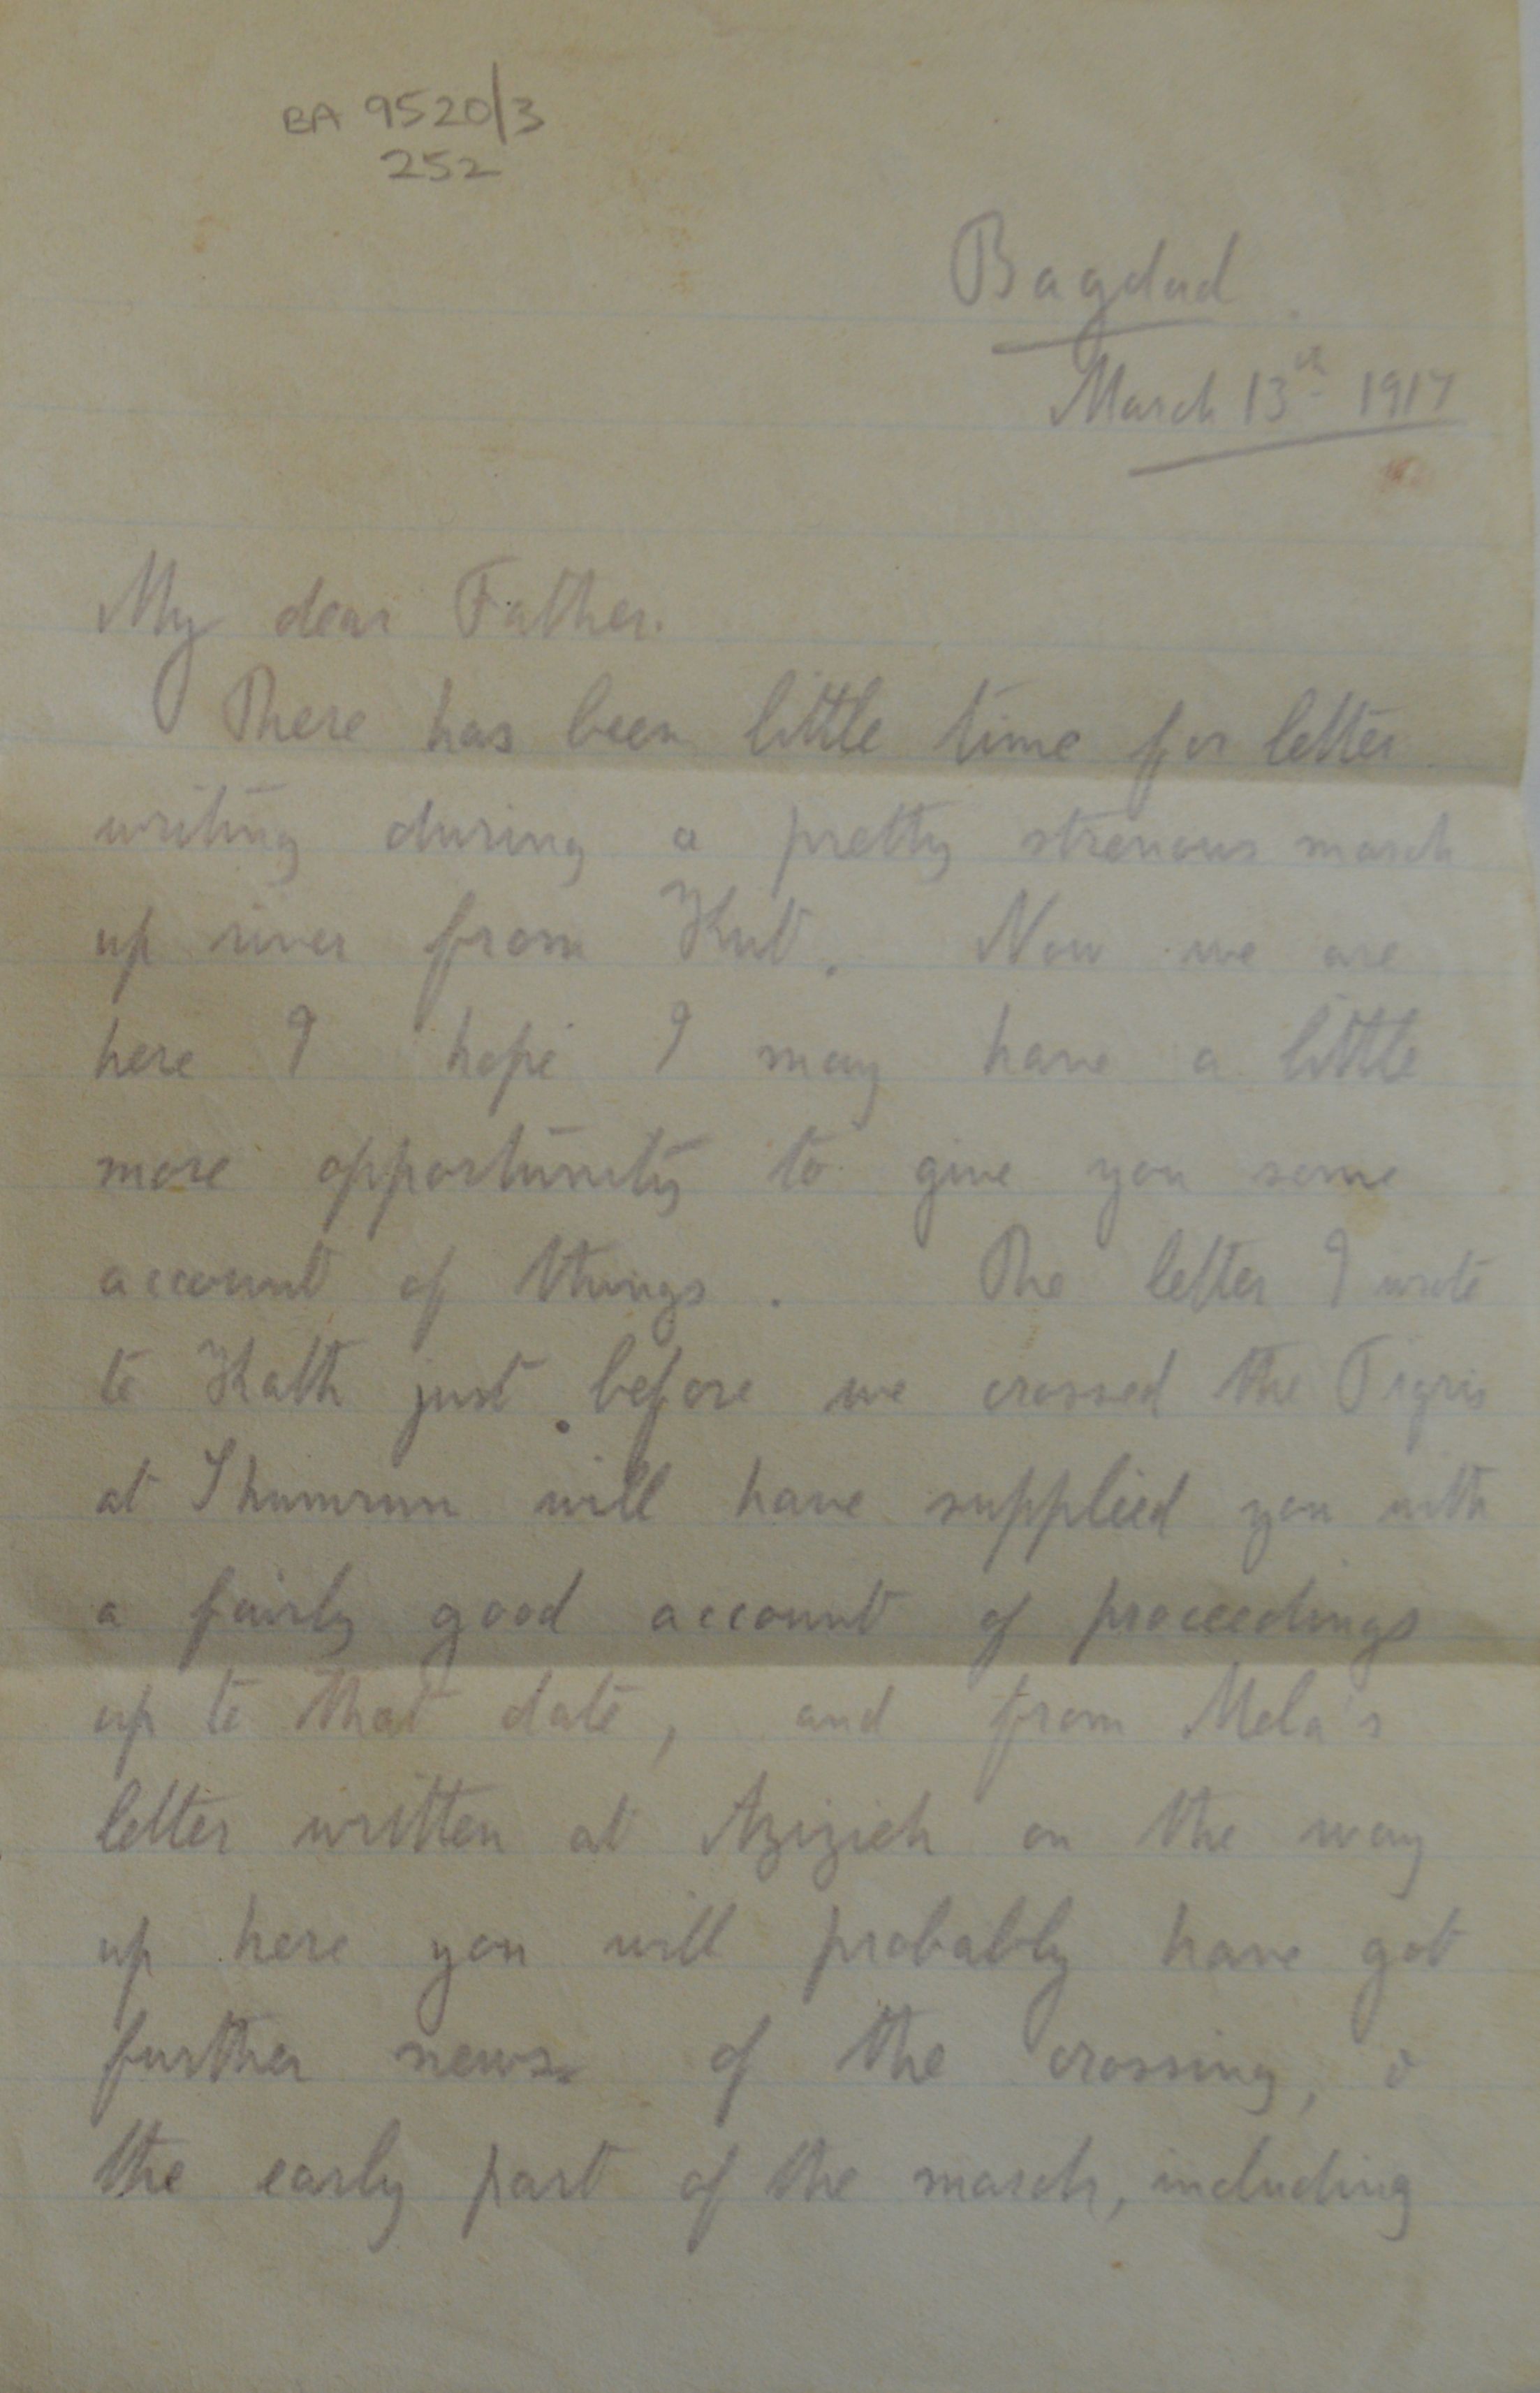 BA 9520/3
252
Bagdad
March 13th 1917
My dear Father.
There has been little time for letter
writing during a pretty strenous march
up river from Kut. Now we are
here I hope I may have a little
more opportunity to give you some
account of things. The letter I wrote
to Kath just before we crossed the Tigris
at Shumrun will have supplied you with
a fairly good account of proceedings
up to that date, and from Mela's
letter written at Azizieh on the way
up here you will probably have got
further news of the crossing, &
the early part of the march, including